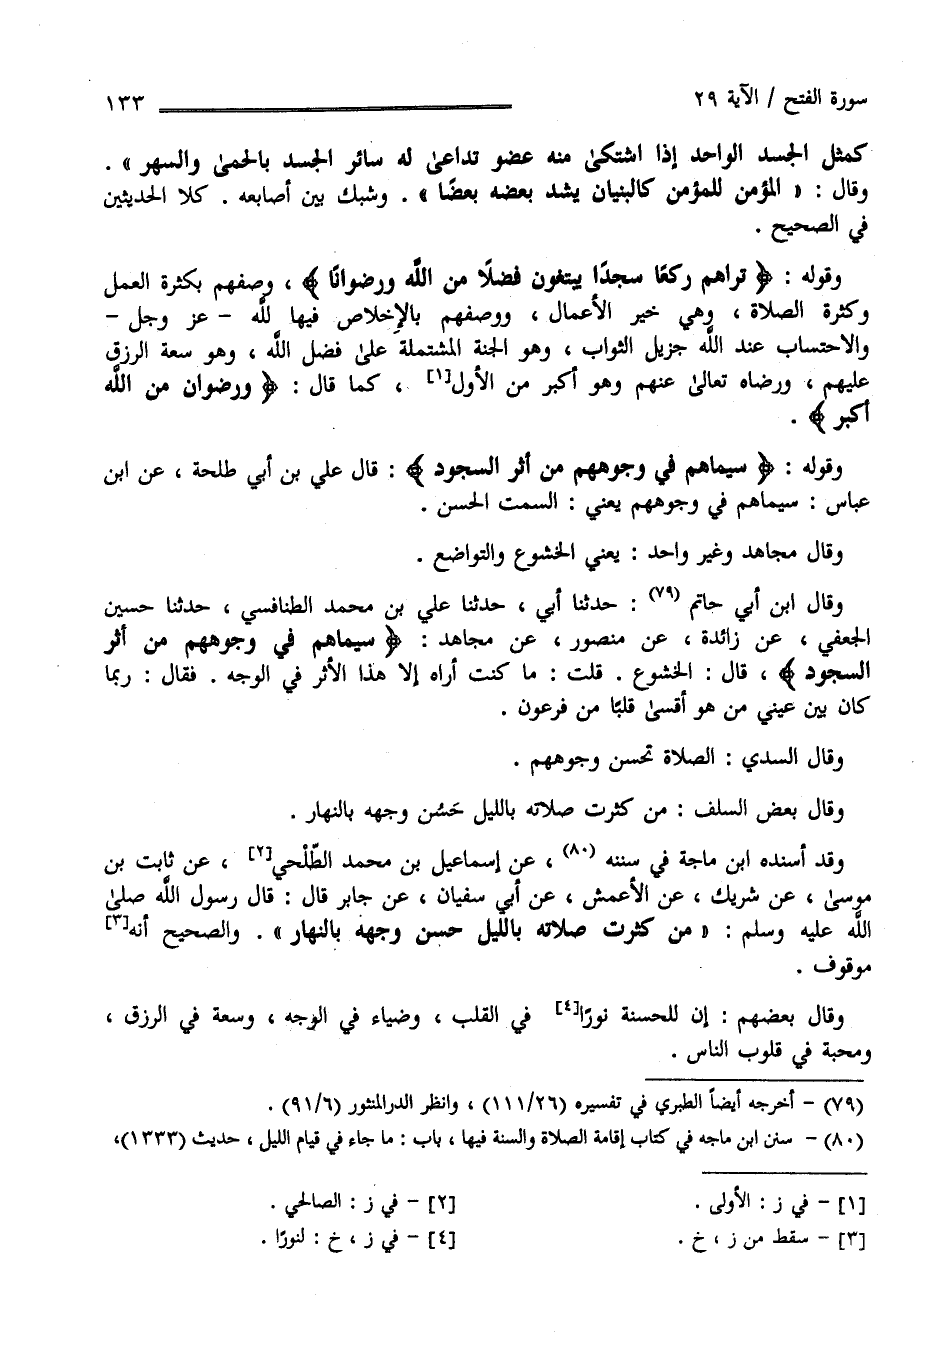 سورة الفتح / الآية ٢٩ ١٣٣
كمثل الجسد الواحد إذا اشتكىٰ منه عضو تداعىٰ له سائر الجسد بالحمىٰ والسهر » .
وقال : « المؤمن للمؤمن كالبنيان يشد بعضه بعضًا » . وشبك بين أصابعه . كلا الحديثين
في الصحيح .
وقوله : ﴿ تراهم ركعًا سجدًا يبتغون فضلًا من اللَّه ورضوانًا ﴾ ، وصفهم بكثرة العمل
وكثرة الصلاة ، وهي خير الأعمال ، ووصفهم بالإخلاص فيها للَّه – عز وجل –
والاحتساب عند اللَّه جزيل الثواب ، وهو الجنة المشتملة علىٰ فضل اللَّه ، وهو سعة الرزق
عليهم ، ورضاه تعالىٰ عنهم وهو أكبر من الأول[١] ، كما قال : ﴿ ورضوان من اللَّه
أكبر ﴾ .
وقوله : ﴿ سيماهم في وجوههم من أثر السجود ﴾ : قال علي بن أبي طلحة ، عن ابن
عباس : سيماهم في وجوههم يعني : السمت الحسن .
وقال مجاهد وغير واحد : يعني الخشوع والتواضع .
وقال ابن أبي حاتم (٧٩) : حدثنا أبي ، حدثنا علي بن محمد الطنافسي ، حدثنا حسين
الجعفي ، عن زائدة ، عن منصور ، عن مجاهد : ﴿ سيماهم في وجوههم من أثر
السجود ﴾ ، قال : الخشوع . قلت : ما كنت أراه إلا هذا الأثر في الوجه . فقال : ربما
كان بين عيني من هو أقسىٰ قلبًا من فرعون .
وقال السدي : الصلاة تحسن وجوههم .
وقال بعض السلف : من كثرت صلاته بالليل حَسُن وجهه بالنهار .
وقد أسنده ابن ماجة في سننه (٨٠) ، عن إسماعيل بن محمد الطَّلْحي[٢] ، عن ثابت بن
موسىٰ ، عن شريك ، عن الأعمش ، عن أبي سفيان ، عن جابر قال : قال رسول اللَّه صلىٰ
اللَّه عليه وسلم : « من كثرت صلاته بالليل حسن وجهه بالنهار » . والصحيح أنه[٣]
موقوف .
وقال بعضهم : إن للحسنة نورًا[٤] في القلب ، وضياء في الوجه ، وسعة في الرزق ،
ومحبة في قلوب الناس .
(٧٩) – أخرجه أيضاً الطبري في تفسيره (١١١/٢٦) ، وانظر الدرالمنثور (٩١/٦) .
(٨٠) – سنن ابن ماجه في كتاب إقامة الصلاة والسنة فيها ، باب : ما جاء في قيام الليل ، حديث (١٣٣٣)،
[١] – في ز : الأولى . [٢] – في ز : الصالحي .
[٣] – سقط من ز ، خ . [٤] – في ز ، خ : لنورًا .